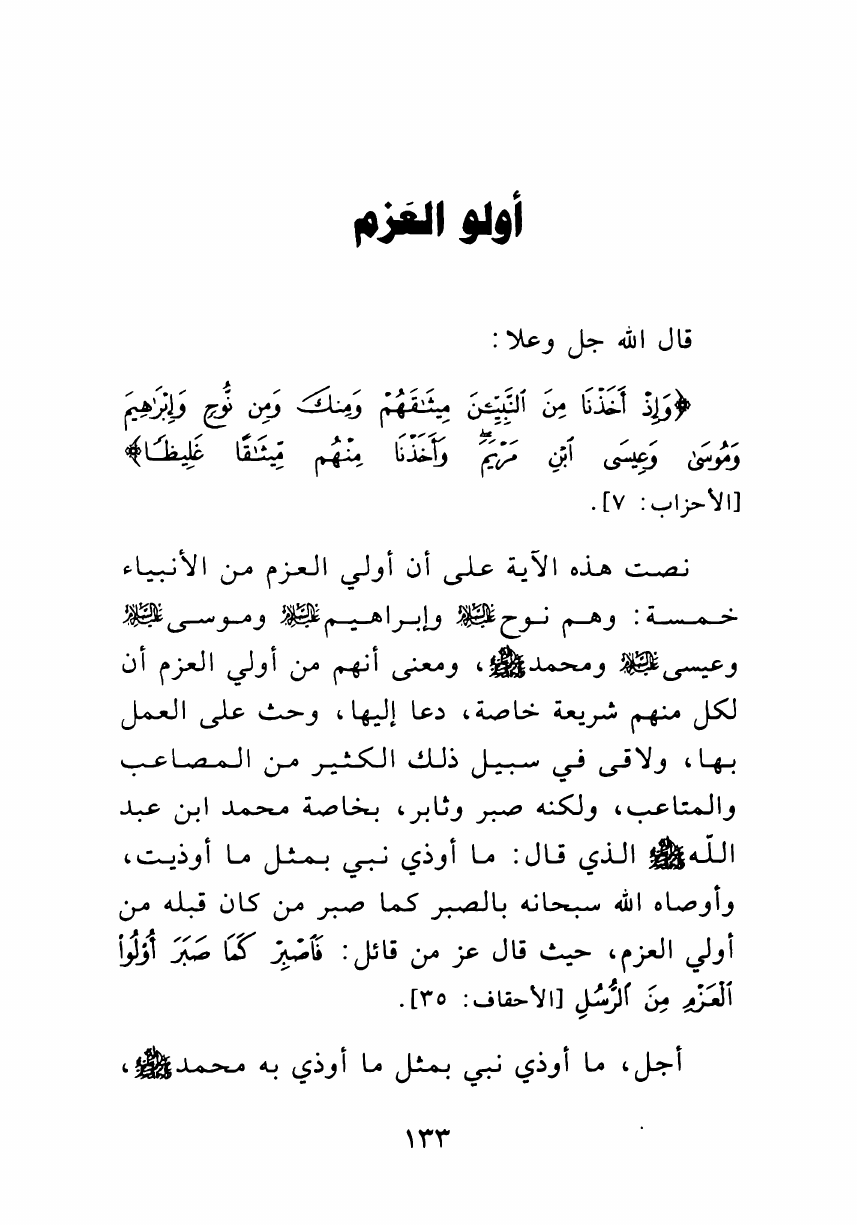 أولو العَزم
قال الله جل وعلا:
﴿وَإِذْ أَخَذْنَا مِنَ ٱلنَّبِيِّـۧنَ مِيثَـٰقَهُمْ وَمِنكَ وَمِن نُّوحٍ وَإِبْرَٰهِيمَ
وَمُوسَىٰ وَعِيسَى ٱبْنِ مَرْيَمَۖ وَأَخَذْنَا مِنْهُم مِّيثَـٰقًا غَلِيظًـا﴾
[الأحزاب: ٧].
نصت هذه الآية على أن أولي العزم من الأنبياء
خمسة: وهم نوح عليه السلام وإبراهيم عليه السلام وموسى عليه السلام
وعيسى عليه السلام ومحمد ﷺ، ومعنى أنهم من أولي العزم أن
لكل منهم شريعة خاصة، دعا إليها، وحث على العمل
بها، ولاقى في سبيل ذلك الكثير من المصاعب
والمتاعب، ولكنه صبر وثابر، بخاصة محمد ابن عبد
اللّه ﷺ الذي قال: ما أوذي نبي بمثل ما أوذيت،
وأوصاه الله سبحانه بالصبر كما صبر من كان قبله من
أولي العزم، حيث قال عز من قائل: فَٱصْبِرْ كَمَا صَبَرَ أُوْلُوا۟
ٱلْعَزْمِ مِنَ ٱلرُّسُلِ [الأحقاف: ٣٥].
أجل، ما أوذي نبي بمثل ما أوذي به محمد ﷺ،
١٣٣